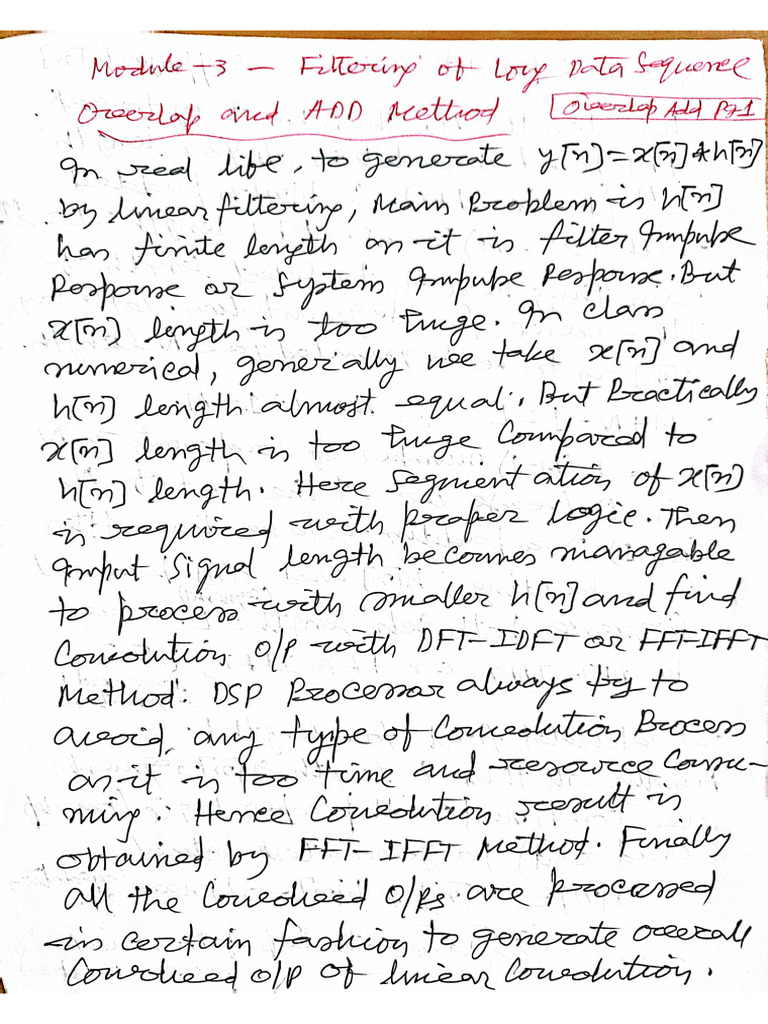 Module-3 – Filtering of Long Data Sequence
Overlap and ADD Method Overlap Add Pg-1
In real life, to generate y[n]=x[n]*h[n]
by linear filtering, Main Problem is h[n]
has finite length as it is filter Impulse
Response or System Impulse Response. But
x[n] length is too huge. In class
numerical, generally we take x[n] and
h[n] length almost equal. But Practically
x[n] length is too huge Compared to
h[n] length. Here Segmentation of x[n]
is required with proper logic. Then
Input Signal length becomes managable
to process with smaller h[n] and find
Convolution O/P with DFT-IDFT or FFT-IFFT
Method. DSP Processor always try to
avoid any type of Convolution Process
as it is too time and resource Consu-
ming. Hence Convolution result is
obtained by FFT-IFFT Method. Finally
all the Convolved O/Ps are processed
in certain fashion to generate overall
Convolved O/P of linear Convolution.